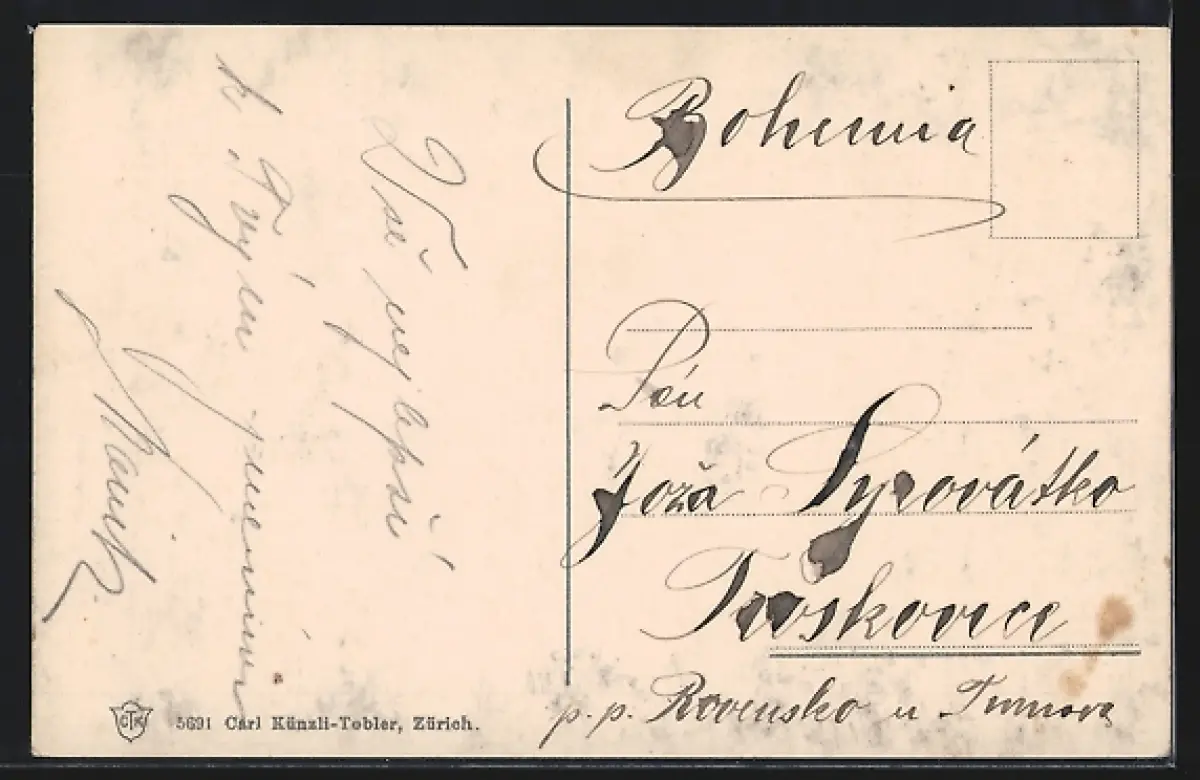 Vše nejlepší
k Tvým jmeninám
Bohemia
Pán
Joža Syrovátko
Troskovice
p. p. Rovensko u Turnova
CTK
5691 Carl Künzli-Tobler, Zürich.